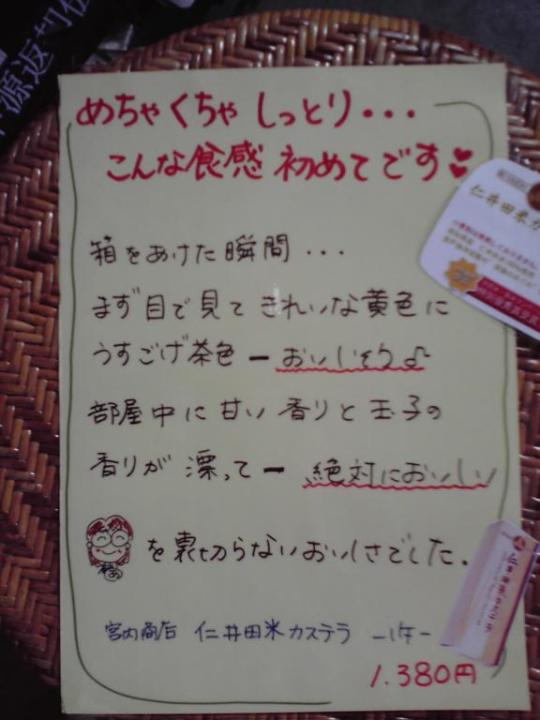 源返却位
めちゃくちゃ しっとり・・・
こんな食感 初めてです♥
箱をあけた瞬間・・・
まず目で見て きれいな黄色に
うすこげ茶色ー おいしそう♪
部屋中に甘い香りと玉子の
香りが漂ってー 絶対においしい
を裏切らないおいしさでした.
宮内商店 仁井田米カステラ
1.380円
仁井田米カ